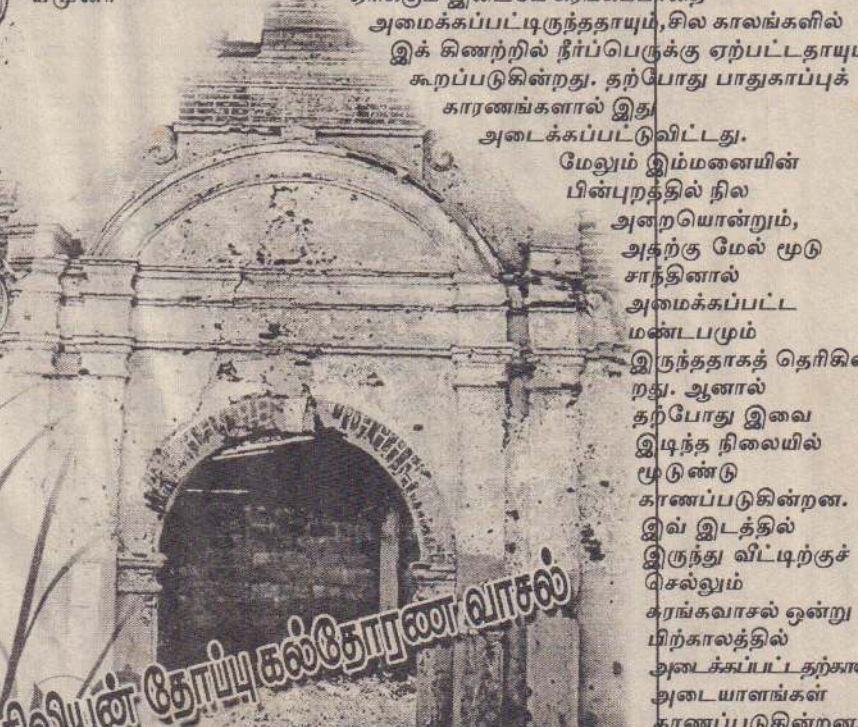 அமைக்கப்பட்டிருந்ததாயும்,சில காலங்களில்
இக் கிணற்றில் நீர்ப்பெருக்கு ஏற்பட்டதாயும்
கூறப்படுகின்றது. தற்போது பாதுகாப்புக்
காரணங்களால் இது
அடைக்கப்பட்டுவிட்டது.
மேலும் இம்மனையின்
பின்புறத்தில் நில
அறையொன்றும்,
அதற்கு மேல் மூடு
சாந்தினால்
அமைக்கப்பட்ட
மண்டபமும்
இருந்ததாகத் தெரிகின்
றது. ஆனால்
தற்போது இவை
இடிந்த நிலையில்
மூடுண்டு
காணப்படுகின்றன.
இவ் இடத்தில்
இருந்து வீட்டிற்குச்
செல்லும்
சுரங்கவாசல் ஒன்று
பிற்காலத்தில்
அடைக்கப்பட்டதற்கான
அடையாளங்கள்
காணப்படுகின்றன
தோப்பு கல்தோரண வாசல்